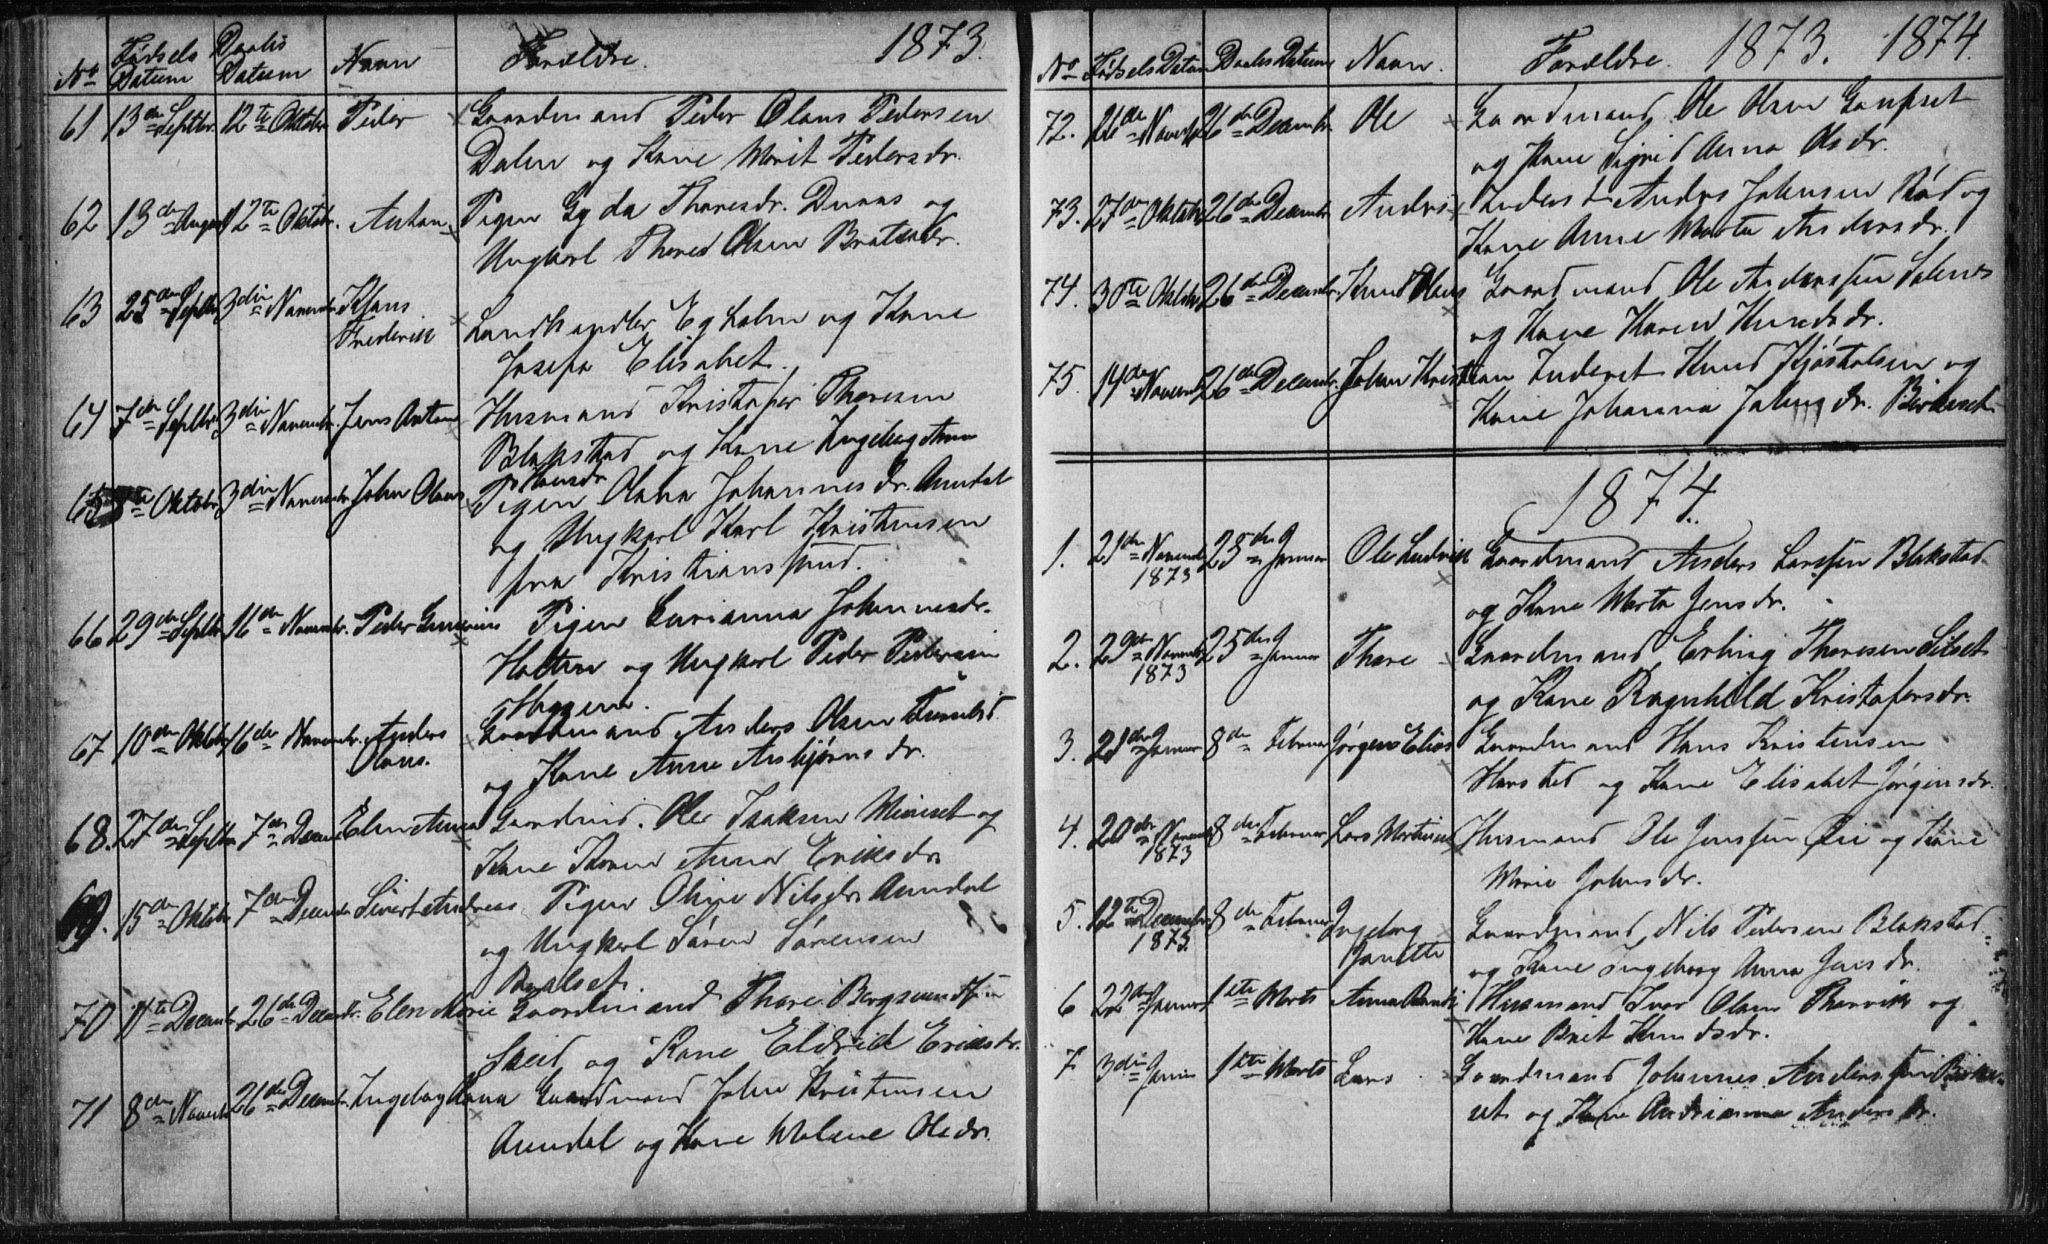 1873.
No Fødsels Datum Daabs Datum Navn Forældre.
61 13de Septbr. 12te Oktober Peder Gaardmand Peder Olaus Pedersen
Dalen og Kone Marit Pedersdr.
62 13de August 12te Oktobr. Anton Pigen Gyda Thoresdr. og
Ungkarl Thore Olsen
63 25de Septbr. 3die Novembr. Hans Frederik Landhandler Egholm og Kone
Josefa Elisabet.
64 7de Septbr. 3die Novembr. Jens Anton Husmand Kristofer Thoresen
Blakstad og Kone Ingeborg Anna
Hansdr.
65 8te Oktobr. 3die Novembr. John Olaus Pigen Olava Johannesdr. Aundal
og Ungkarl Karl Kristensen
fra Kristiansund.
66 29de Septbr. 16de Novembr. Peder Pigen Johannesdr.
Holten og Ungkarl Peder Pedersen
67 10de Oktbr. 16de Novembr. Anders Olaus. Gaardmand Anders Olsen
og Kone Anne Asbjørnsdr.
68. 27de Septbr. 7de Decembr Elen Anna Gaardmd. Ole Isaksen og
Kone Karen Anna Eriksdr.
69. 15de Oktobr 7de Decembr Sivert Andreas Pigen Oline Nilsdr. Aundal
og Ungkarl Søren Sørensen
70 11te Decembr 26de Decembr. Elen Marie Gaardmand Thore
Skeid og Kone Eldrid Eriksdr.
71 8de Novembr 26de Decembr. Ingeborg Anna Gaardmand John Kristensen
Aundal og Kone Malene Olsdr.
1873. 1874.
No Fødsels Datum Daabs Datum Navn. Forældre.
72. 26de Novembr 26de Decembr. Ole Gaardmand Ole Olsen Gaupset
og Kone Sigrid Anna Olsdr.
73. 27de Oktobr 26de Decembr Anders Inderst Anders Johnsen Rød og
Kone Anne Marta Andersdr.
74. 30te Oktobr 26de Decembr. Knud Olaus Gaardmand Ole Anderssen Solnes
og Kone Karen Knudsdr.
75. 14de Novembr 26de Decembr. Johan Kristian Inderst Knud og
Kone Johanna Johnsdr. Birkeset
1874.
1. 21de Novembr 1873 25de Januar Ole Ludvik Gaardmand Anders Larssen Blakstad
og Kone Marta Jensdr.
2. 29de Novembr 1873 25de Januar Thore Gaardmand Erling Thoresen Silset
og Kone Ragnhild Kristofersdr.
3. 21de Januar 8de Februar Jørgen Elias Gaardmand Hans Kristensen
Harstad og Kone Elisabet Jørgensdr.
4. 20de Novembr 1873 8de Februar Lars Martinus Husmand Ole Jenssen Øie og Kone
Marie Johnsdr.
5. 12te Decembr 1873 8de Februar Ingeborg Janette Gaardmand Nils Pedersen Blakstad
og Kone Ingeborg Anna Jensdr.
6 22de Januar 1ste Marts Anna Randi Husmand Iver Olsen Thorvik og
Kone Brit Knudsdr.
7 3die Januar 1ste Marts Lars Gaardmand Johannes Anderssen Birke-
set og Kone Andrianna Andersdr.